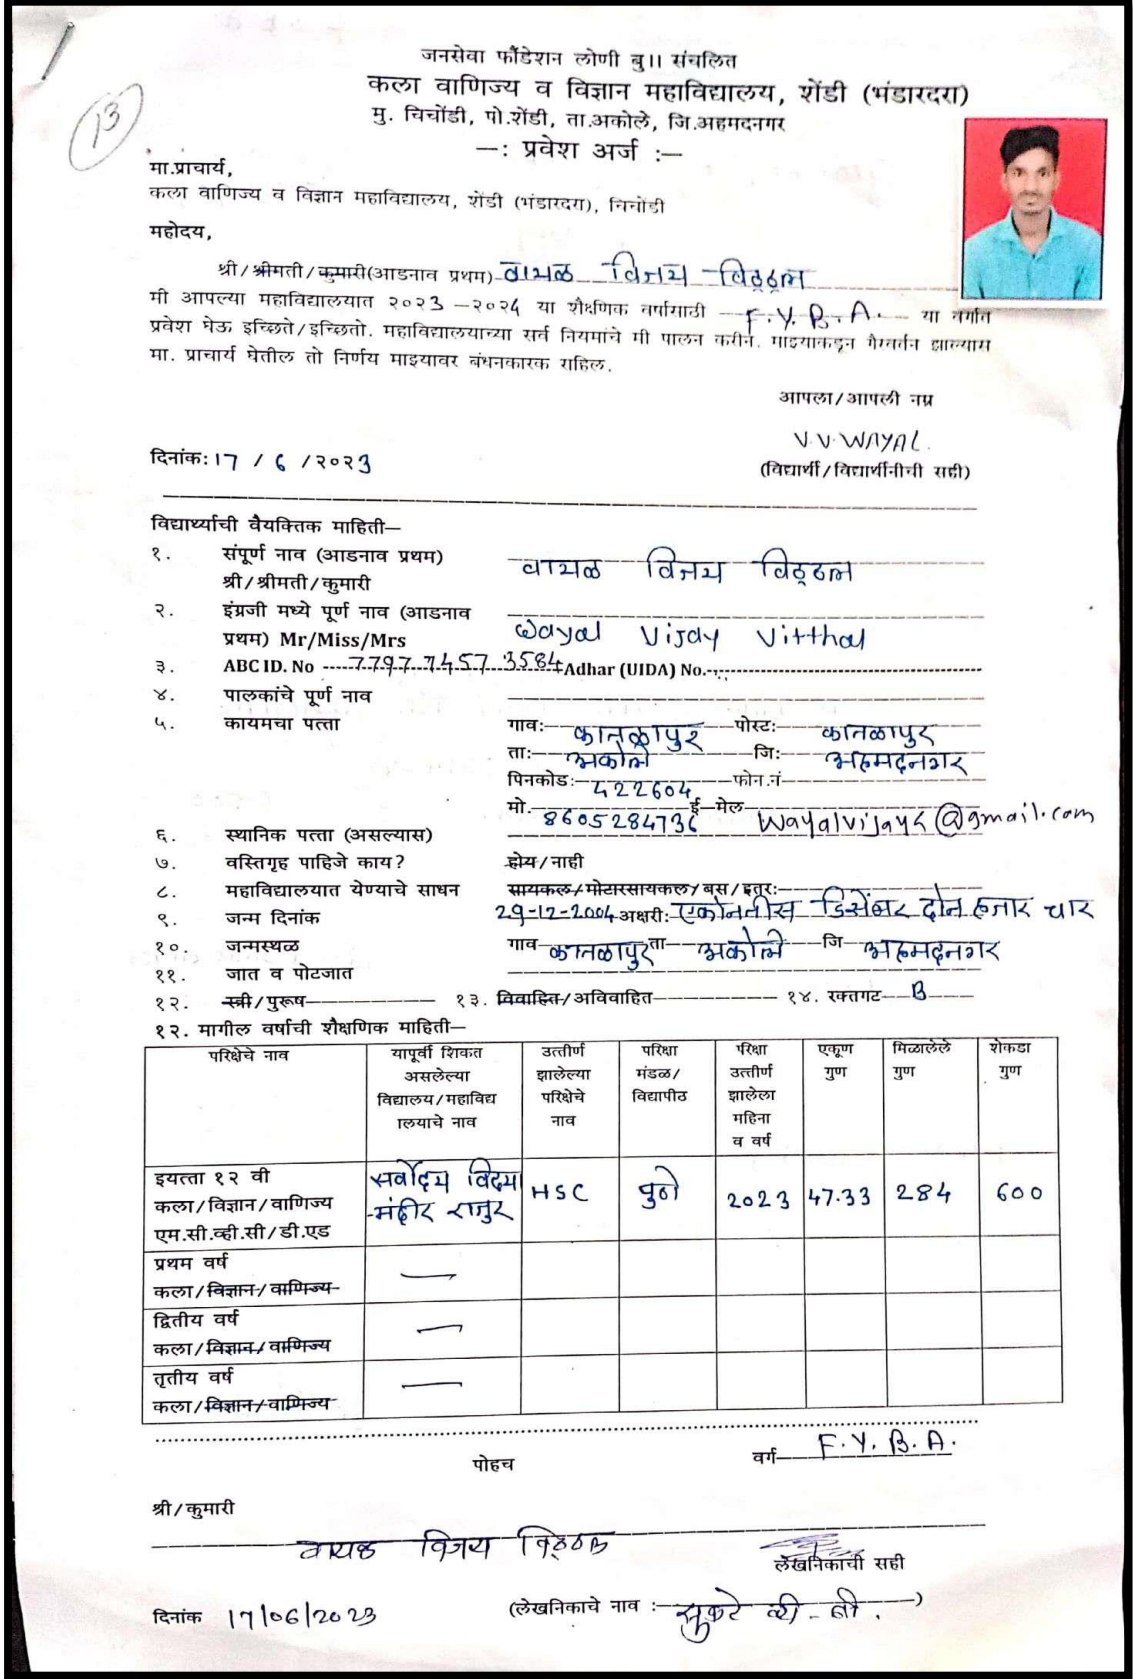 जनसेवा फौंडेशन लोणी बु॥ संचलित
कला वाणिज्य व विज्ञान महाविद्यालय, शेंडी (भंडारदरा)
मु. चिचोंडी, पो.शेंडी, ता.अकोले, जि.अहमदनगर
—: प्रवेश अर्ज :—
13
मा.प्राचार्य,
कला वाणिज्य व विज्ञान महाविद्यालय, शेंडी (भंडारदरा), चिचोंडी
महोदय,
श्री/श्रीमती/कुमारी(आडनाव प्रथम) वायळ विजय विठ्ठल
मी आपल्या महाविद्यालयात २०२३ –२०२४ या शैक्षणिक वर्षासाठी F.Y.B.A. या वर्गात
प्रवेश घेऊ इच्छिते/इच्छितो. महाविद्यालयाच्या सर्व नियमांचे मी पालन करीन. माझ्याकडून गैरवर्तन झाल्यास
मा. प्राचार्य घेतील तो निर्णय माझ्यावर बंधनकारक राहिल.
आपला/आपली नम्र
V.V.WAYAL.
दिनांक: 17 / 6 /२०२3
(विद्यार्थी/विद्यार्थीनीची सही)
विद्यार्थ्याची वैयक्तिक माहिती—
१. संपूर्ण नाव (आडनाव प्रथम) वायळ विजय विठ्ठल
श्री/श्रीमती/कुमारी
२. इंग्रजी मध्ये पूर्ण नाव (आडनाव
प्रथम) Mr/Miss/Mrs Wayal Vijay Vitthal
३. ABC ID. No 7797 7457 3584 Adhar (UIDA) No.
४. पालकांचे पूर्ण नाव
५. कायमचा पत्ता गाव: कातळापुर पोस्ट: कातळापुर
ता: अकोले जि: अहमदनगर
पिनकोड: 422604 फोन.नं
मो. 8605284736 ई–मेल Wayalvijay5@gmail.com
६. स्थानिक पत्ता (असल्यास)
७. वस्तिगृह पाहिजे काय? होय/नाही
८. महाविद्यालयात येण्याचे साधन सायकल/मोटारसायकल/बस/इतर:
९. जन्म दिनांक 29-12-2004 अक्षरी: एकोनतीस डिसेंबर दोन हजार चार
१०. जन्मस्थळ गाव कातळापुर ता अकोले जि अहमदनगर
११. जात व पोटजात
१२. स्त्री/पुरूष १३. विवाहित/अविवाहित १४. रक्तगट B
१२. मागील वर्षाची शैक्षणिक माहिती—
परिक्षेचे नाव
यापूर्वी शिकत
असलेल्या
विद्यालय/महाविद्य
ालयाचे नाव
उत्तीर्ण
झालेल्या
परिक्षेचे
नाव
परिक्षा
मंडळ/
विद्यापीठ
परिक्षा
उत्तीर्ण
झालेला
महिना
व वर्ष
एकूण
गुण
मिळालेले
गुण
शेकडा
गुण
इयत्ता १२ वी
कला/विज्ञान/वाणिज्य
एम.सी.व्ही.सी/डी.एड
सर्वोदय विदया
मंदीर राजुर
HSC
पुणे
2023
47.33
284
600
प्रथम वर्ष
कला/विज्ञान/वाणिज्य
—
द्वितीय वर्ष
कला/विज्ञान/वाणिज्य
—
तृतीय वर्ष
कला/विज्ञान/वाणिज्य
—
पोहच
वर्ग F.Y.B.A.
श्री/कुमारी
वायळ विजय विठ्ठल
लेखनिकाची सही
दिनांक 17/06/2023 (लेखनिकाचे नाव :— )